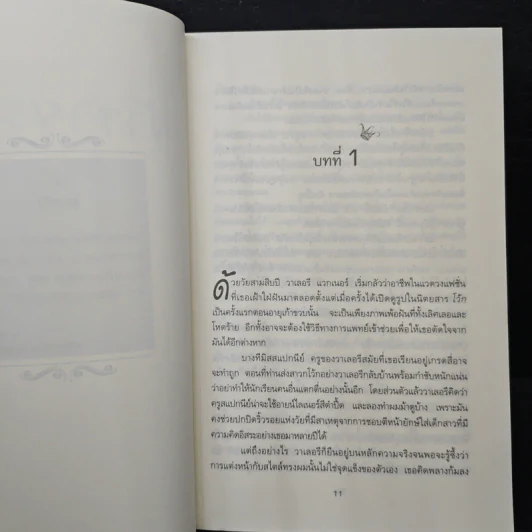 บทที่ 1
ด้วยวัยสามสิบปี วาเลอรี แวกเนอร์ เริ่มกลัวว่าอาชีพในแวดวงแฟชั่น
ที่เธอเฝ้าใฝ่ฝันมาตลอดตั้งแต่เมื่อครั้งได้เปิดดูรูปในนิตยสาร โว้ก
เป็นครั้งแรกตอนอายุเก้าขวบนั้น จะเป็นเพียงภาพเพ้อฝันที่ทั้งเลิศเลอและ
โหดร้าย อีกทั้งอาจจะต้องใช้วิธีทางการแพทย์เข้าช่วยเพื่อให้เธอตัดใจจาก
มันได้อีกต่างหาก
บางทีมิสสแปกนีย์ ครูของวาเลอรีสมัยที่เธอเรียนอยู่เกรดสี่อาจ
จะทำถูก ตอนที่ท่านส่งสาวกโว้กอย่างวาเลอรีกลับบ้านพร้อมกำชับหนักแน่น
ว่าอย่าทำให้นักเรียนคนอื่นแตกตื่นอย่างนั้นอีก โดยส่วนตัวแล้ววาเลอรีคิดว่า
ครูสแปกนีย์น่าจะใช้อายน์ไลเนอร์สีดำปี๋ด และลองทำผมม้าดูบ้าง เพราะมัน
คงช่วยปกปิดริ้วรอยแห่งวัยที่มีสาเหตุจากการชอบตีหน้ายักษ์ใส่เด็กสาวที่มี
ความคิดอิสระอย่างเธอมาหลายปีได้
แต่ถึงอย่างไร วาเลอรีก็ยืนอยู่บนหลักความจริงจนพอจะรู้ซึ้งว่า
การแต่งหน้ากับสไตล์ทรงผมนั้นไม่ใช่จุดแข็งของตัวเอง เธอคิดพลางก้มลง
11